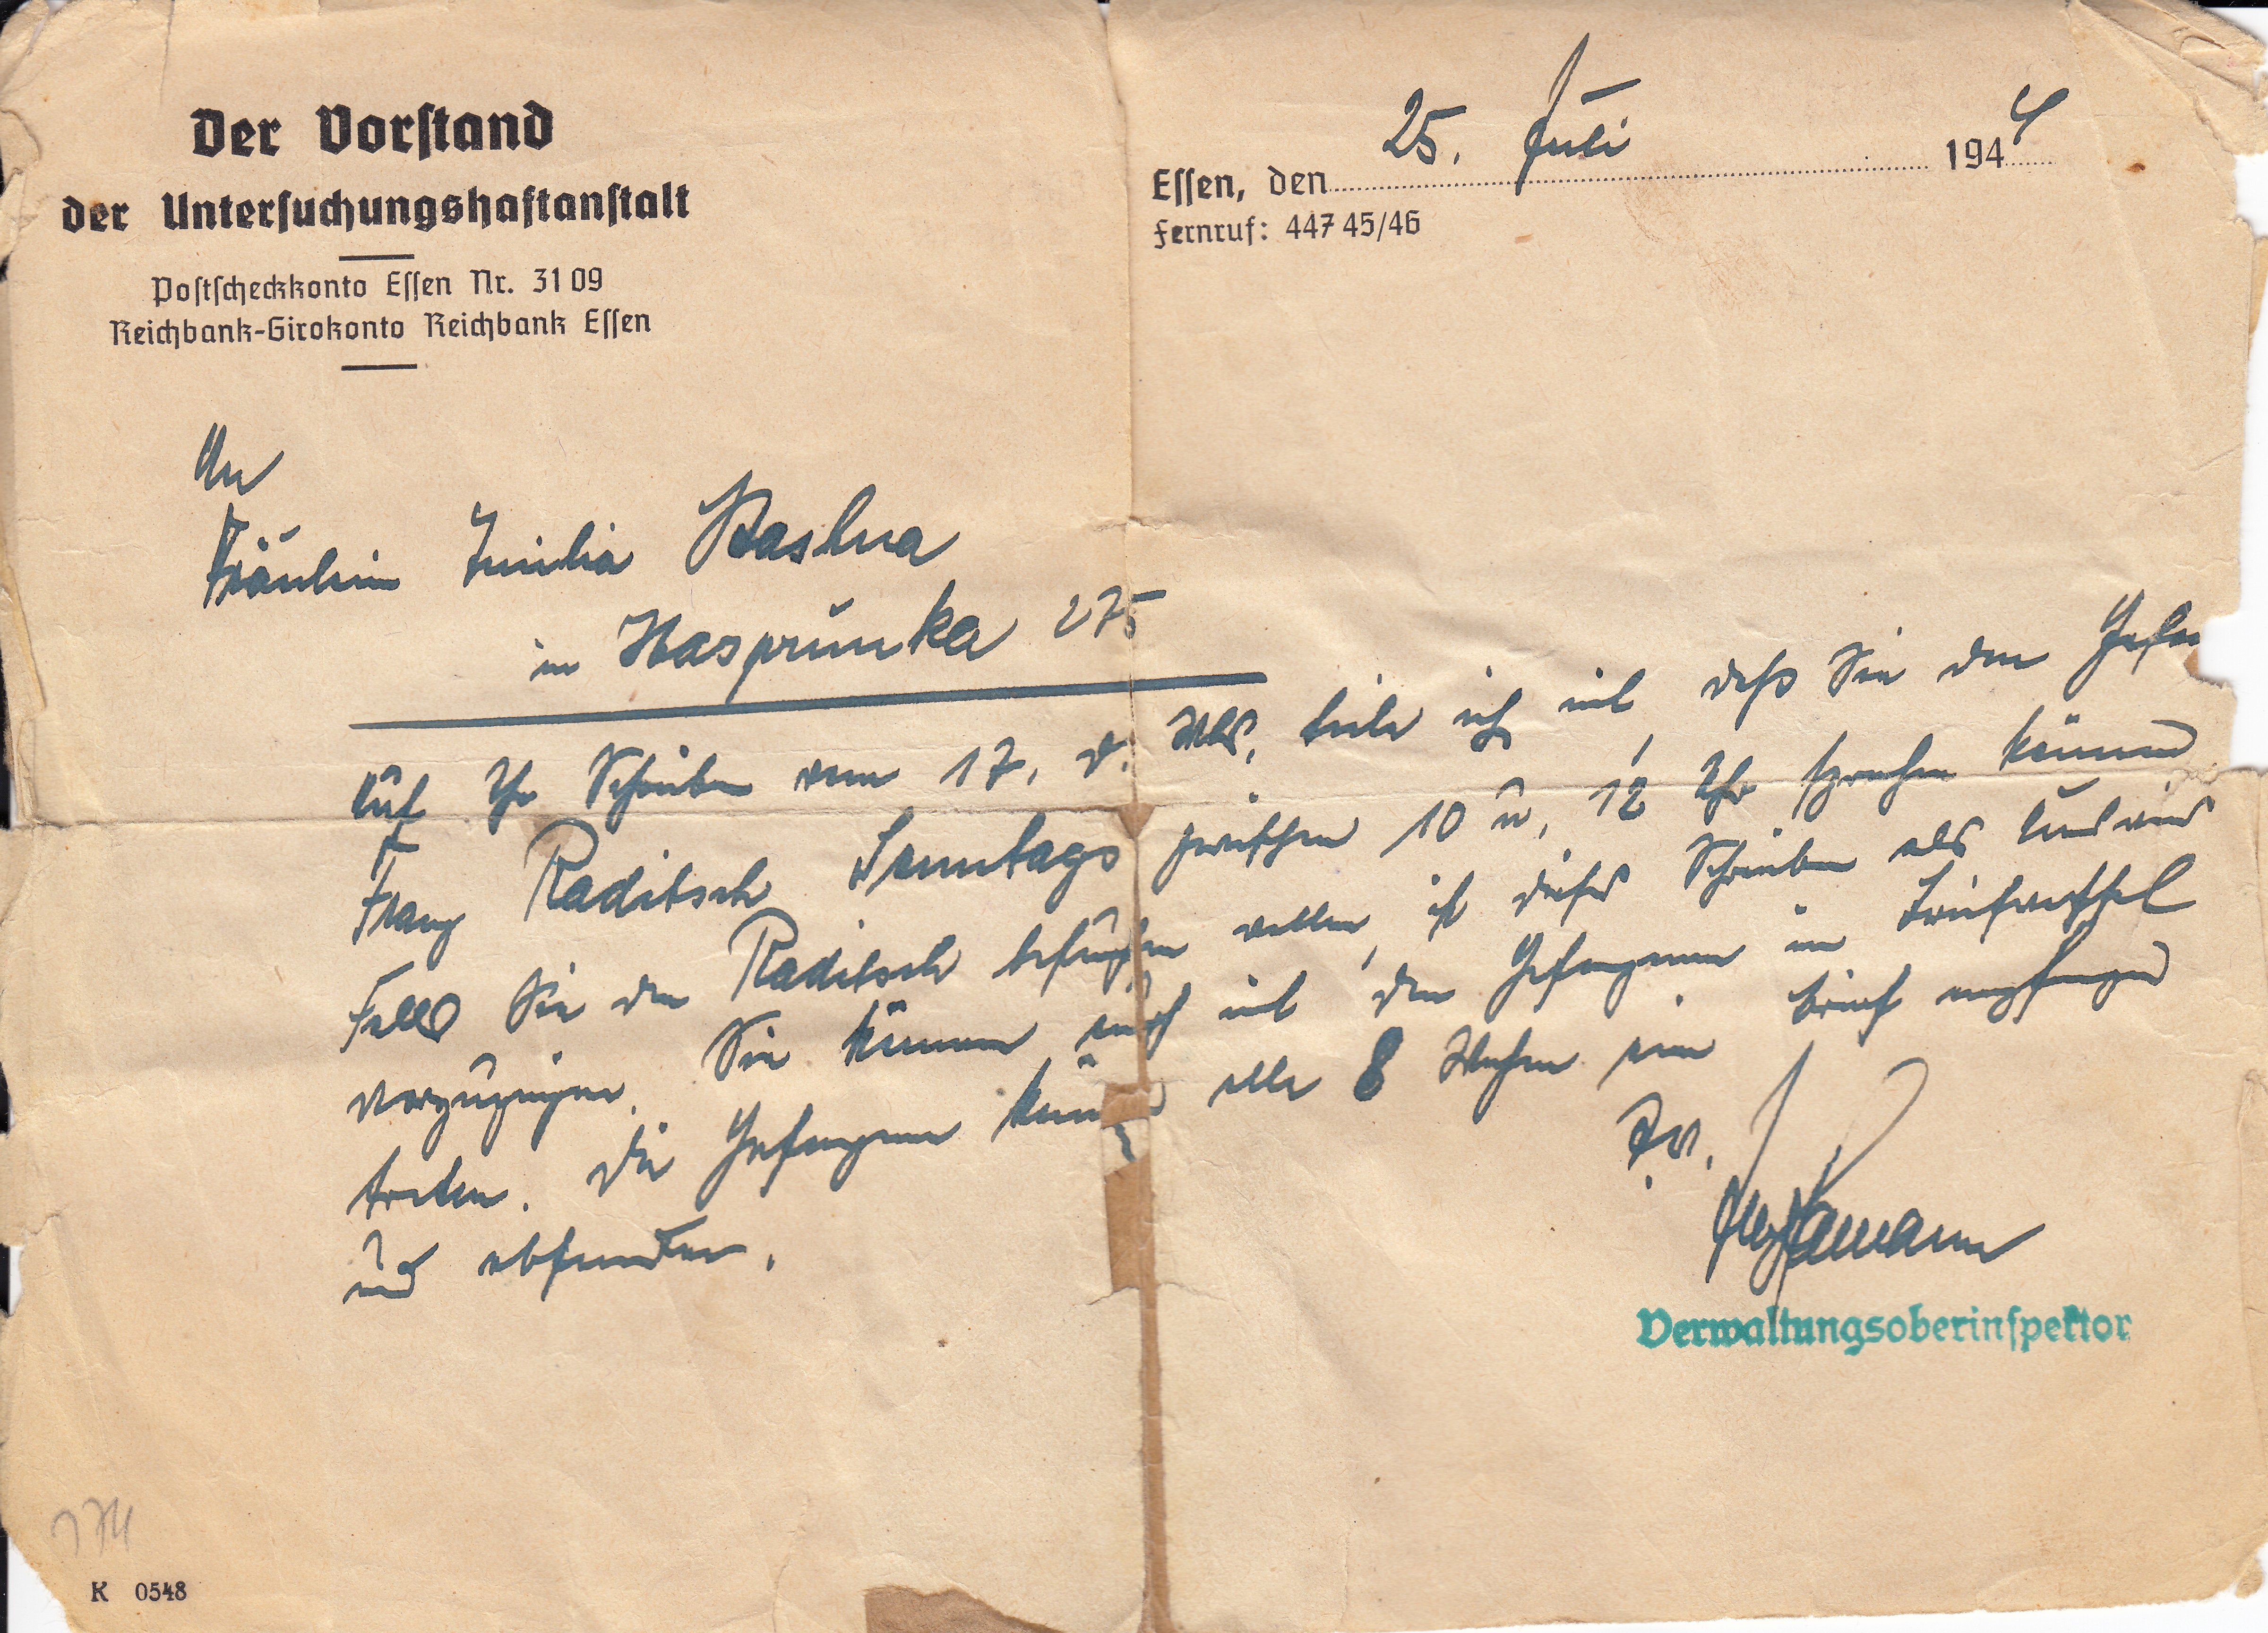 Der Vorstand
der Untersuchungshaftanstalt
Postscheckkonto Essen Nr. 31 09
Reichbank-Girokonto Reichbank Essen
Essen, den 25. Juli 1944
Fernruf: 447 45/46
An
Fräulein Emilia
in Hasprunka 275
Auf Ihr Schreiben vom 17. d. Mts. teile ich mit, daß Sie den Gefan
Franz Raditsch Sonntags zwischen 10 u. 12 Uhr sprechen können
Falls Sie den Raditsch besuchen wollen, ist dieses Schreiben als Ausweis
vorzuzeigen. Sie können auch mit den Gefangenen in Briefwechsel
treten. Die Gefangenen können alle 8 Wochen ein Brief empfangen
und absenden.
I.V.
Verwaltungsoberinspektor
774
K 0548